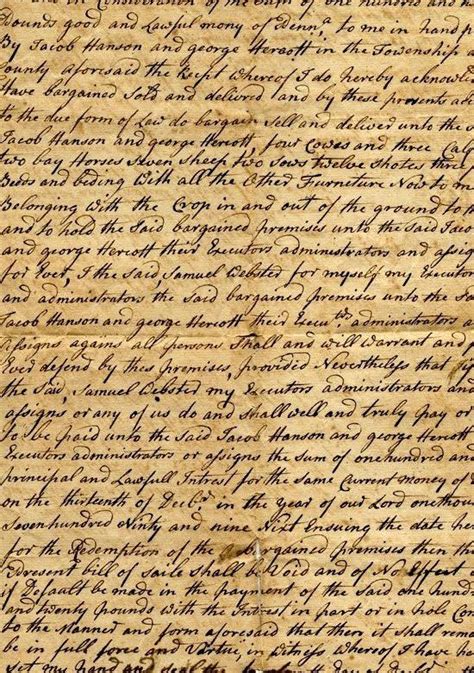 and in Consideration of the Sum of one hundred and
Pounds good and Lawful mony of Penna to me in hand p
By Jacob Hanson and george Hercott in the Township
County aforesaid the Rept whereof I do hereby acknowle
Have bargained Sold and delivred and by these presents a
to the due form of Law do bargain Sell and deliver unto the
Jacob Hanson and george Hercott, four Cowes and three Cal
two bay Horses Seven Sheep two Sows twelve Shotes thre
Beds and beding With all the Other Furneture Now to m
Belonging with the Crop in and out of the ground to
and to hold the Said bargained premises unto the Said Jaco
and george Hercott their Executors administrators and assig
for Ever, I the Said, Samuel Webster for myself my Executor
and administrators the Said bargained premises unto the S
Jacob Hanson and george Hercott their Execurs administrators
Assigns agains all persons Shall and will Warrant and f
Ever defend by thes premises, provided Nevertheless that if
the Said, Samuel Webster my Executors administrators and
assigns or any of us do and Shall well and truly pay or
to be paid unto the Said Jacob Hanson and george Hercott
Executors administrators or assigns the Sum of onehundred and
principal and Lawfull Intrest for the Same Current money of
on the thirteenth of Decbr in the year of our Lord onethous
Sevenhundred Ninty and nine Nixt Ensuing the date ha
for the Redemption of the bargained premises then th
Present bill of Saile Shall be Void and of No Effect
if Default be made in the payment of the Said one hund
and twenty pounds with the Interest in part or in hole Con
to the Manner and form aforesaid that then it Shall rema
be in full force and Virtue, in Witness whereof I have h
Set my hand and Seal the day of Decbr